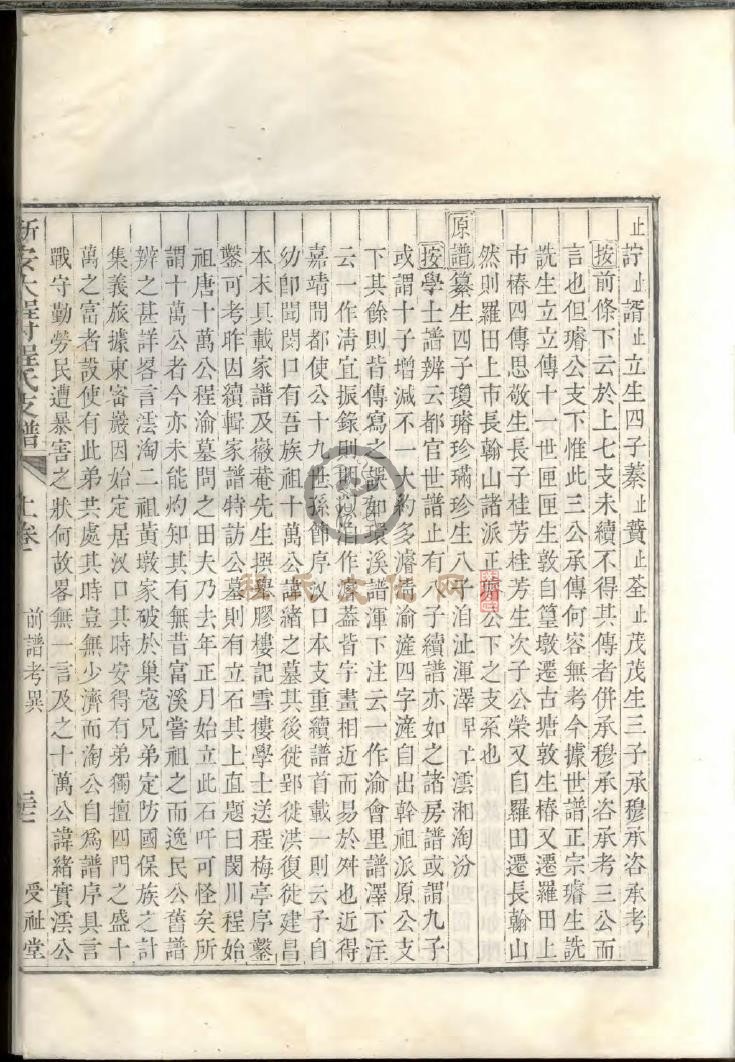 止誝止諝止立生四子蓁止蕡止荃止茂茂生三子承穆承咨承考
按前條下云於上七支未續不得其傳者併承穆承咨承考三公而
言也但璿公支下惟此三公承傳何容無考今據世譜正宗璿生詵
詵生立立傳十一世匣匣生敦自篁墩遷古塘敦生椿又遷羅田上
市椿四傳思敬生長子桂芳桂芳生次子公榮又自羅田遷長翰山
然則羅田上市長翰山諸派正 公下之支系也
原譜纂生四子瓊璿珍璊珍生八子泊沚渾澤 澐湘淘汾
按學士譜辨云都官世譜止有八子續譜亦如之諸房譜或謂九子
或謂十子增減不一大約多濬清渝漨四字漨自出幹祖派原公支
下其餘則皆傳寫之誤如環溪譜渾下注云一作渝會里譜澤下注
云一作淸宜振錄則 以泊作濬蓋皆字畫相近而易於舛也近得
嘉靖間都使公十九世孫節序汊口本支重續譜首載一則云予自
幼卽聞閔口有吾族祖十萬公諱緒之墓其後徙郢徙洪復徙建昌
本末具載家譜及徽菴先生撰譽膠樓記雪樓學士送程梅亭序鑿
鑿可考昨因續輯家譜特訪公墓則有立石其上直題曰閔川程始
祖唐十萬公程渝墓問之田夫乃去年正月始立此石吁可怪矣所
謂十萬公者今亦未能灼知其有無昔富溪嘗祖之而逸民公舊譜
辨之甚詳畧言澐淘二祖黃墩家破於巢寇兄弟定防國保族之計
集義旅據東密巖因始定居汊口其時安得有弟獨擅四門之盛十
萬之富者設使有此弟共處其時豈無少濟而淘公自爲譜序具言
戰守勤勞民遭暴害之狀何故畧無一言及之十萬公諱緒實澐公
新安大程村程氏支譜 上卷 前譜考異 受祉堂
程氏文化网